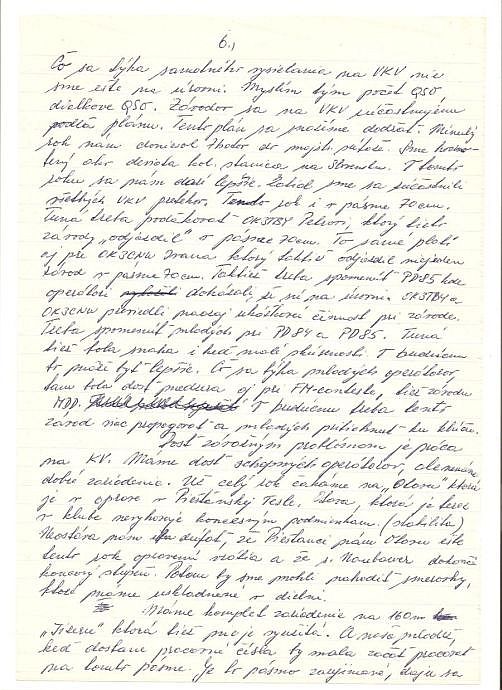 6.,
Čo sa týka samotného vysielania na VKV nie
sme ešte na úrovni. Myslím tým počet QSO
diaľkove QSO. Závodov sa na VKV súčastňujeme
podľa plánu. Tento plán sa snažíme dodržať. Minulý
rok nám doniesol 7 bodov do majstr. súťaže. Sme
tretý ako desiata kol. stanica na Slovensku. V tomto
roku sa nám darí lepšie. Zatiaľ sme sa súčastnili
všetkých VKV pretekov. Tento rok i v pásme 70cm.
Tuná treba poďakovať OK3TBY Petrovi, ktorý tieto
závody „odjazdil" v pásme 70cm. To samé platí
aj pre OK3CNW Ivana ktorý taktiež odjazdil nejeden
závod v pásme 70cm. Taktiež treba spomenúť PD85 kde
operátori dokázali, že sú na úrovni. OK3TBY a
OK3CNW previedli naozaj ukážkovú činnosť pri závode.
Treba spomenúť mladých pri PD84 a PD85. Tuná
tiež bola snaha i keď malé skúsenosti. V budúcnu
to, môže byť lepšie. Čo sa týka mladých operátorov,
tam bola dosť medzera aj pri FM-conteste, tiež závodu
MDD. V budúcnu treba tento
závod viac propagovať a mladých pritiahnuť ku kľúču.
Dosť závažným problémom je práca
na KV. Máme dosť schopných operátorov, ale nemáme
dobré zariadenie. Už celý rok čakáme na „Otavu" ktorá
je v oprave v Piešťanskej Tesle. Otava, ktorá je teraz
v klube nevyhovuje koncesným podmienkam. (stabilita)
Neostáva nám iba dúfať, že Piešťanci nám Otavu ešte
tento rok opravenú vrátia a že s. Naubauer dokončí
koncový stupeň. Potom by sme mohli nahodiť smerovky,
ktoré máme uskladnené v dielni.
Máme komplet zariadenie na 160m
„Jizeru" ktorá tiež nie je využitá. A naše mladé,
keď dostane pracovné čísla by mala začať pracovať
na tomto pásme. Je to pásmo zaujímavé, dajú sa